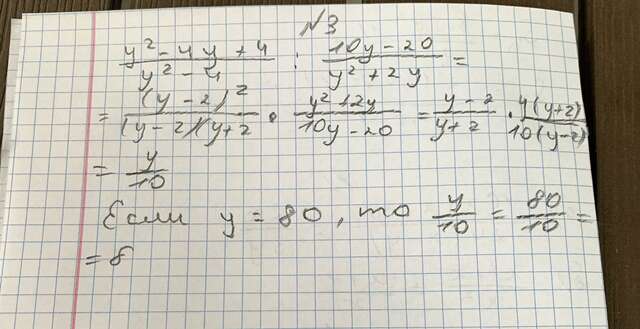 №3
(y² - 4y + 4)/(y² - 4) : (10y - 20)/(y² + 2y) =
= (y - 2)²/((y - 2)(y + 2) · (y² + 2y)/(10y - 20) = (y - 2)/(y + 2) · y(y + 2)/10(y - 2)
= y/10
Если y = 80, то y/10 = 80/10 =
= 8